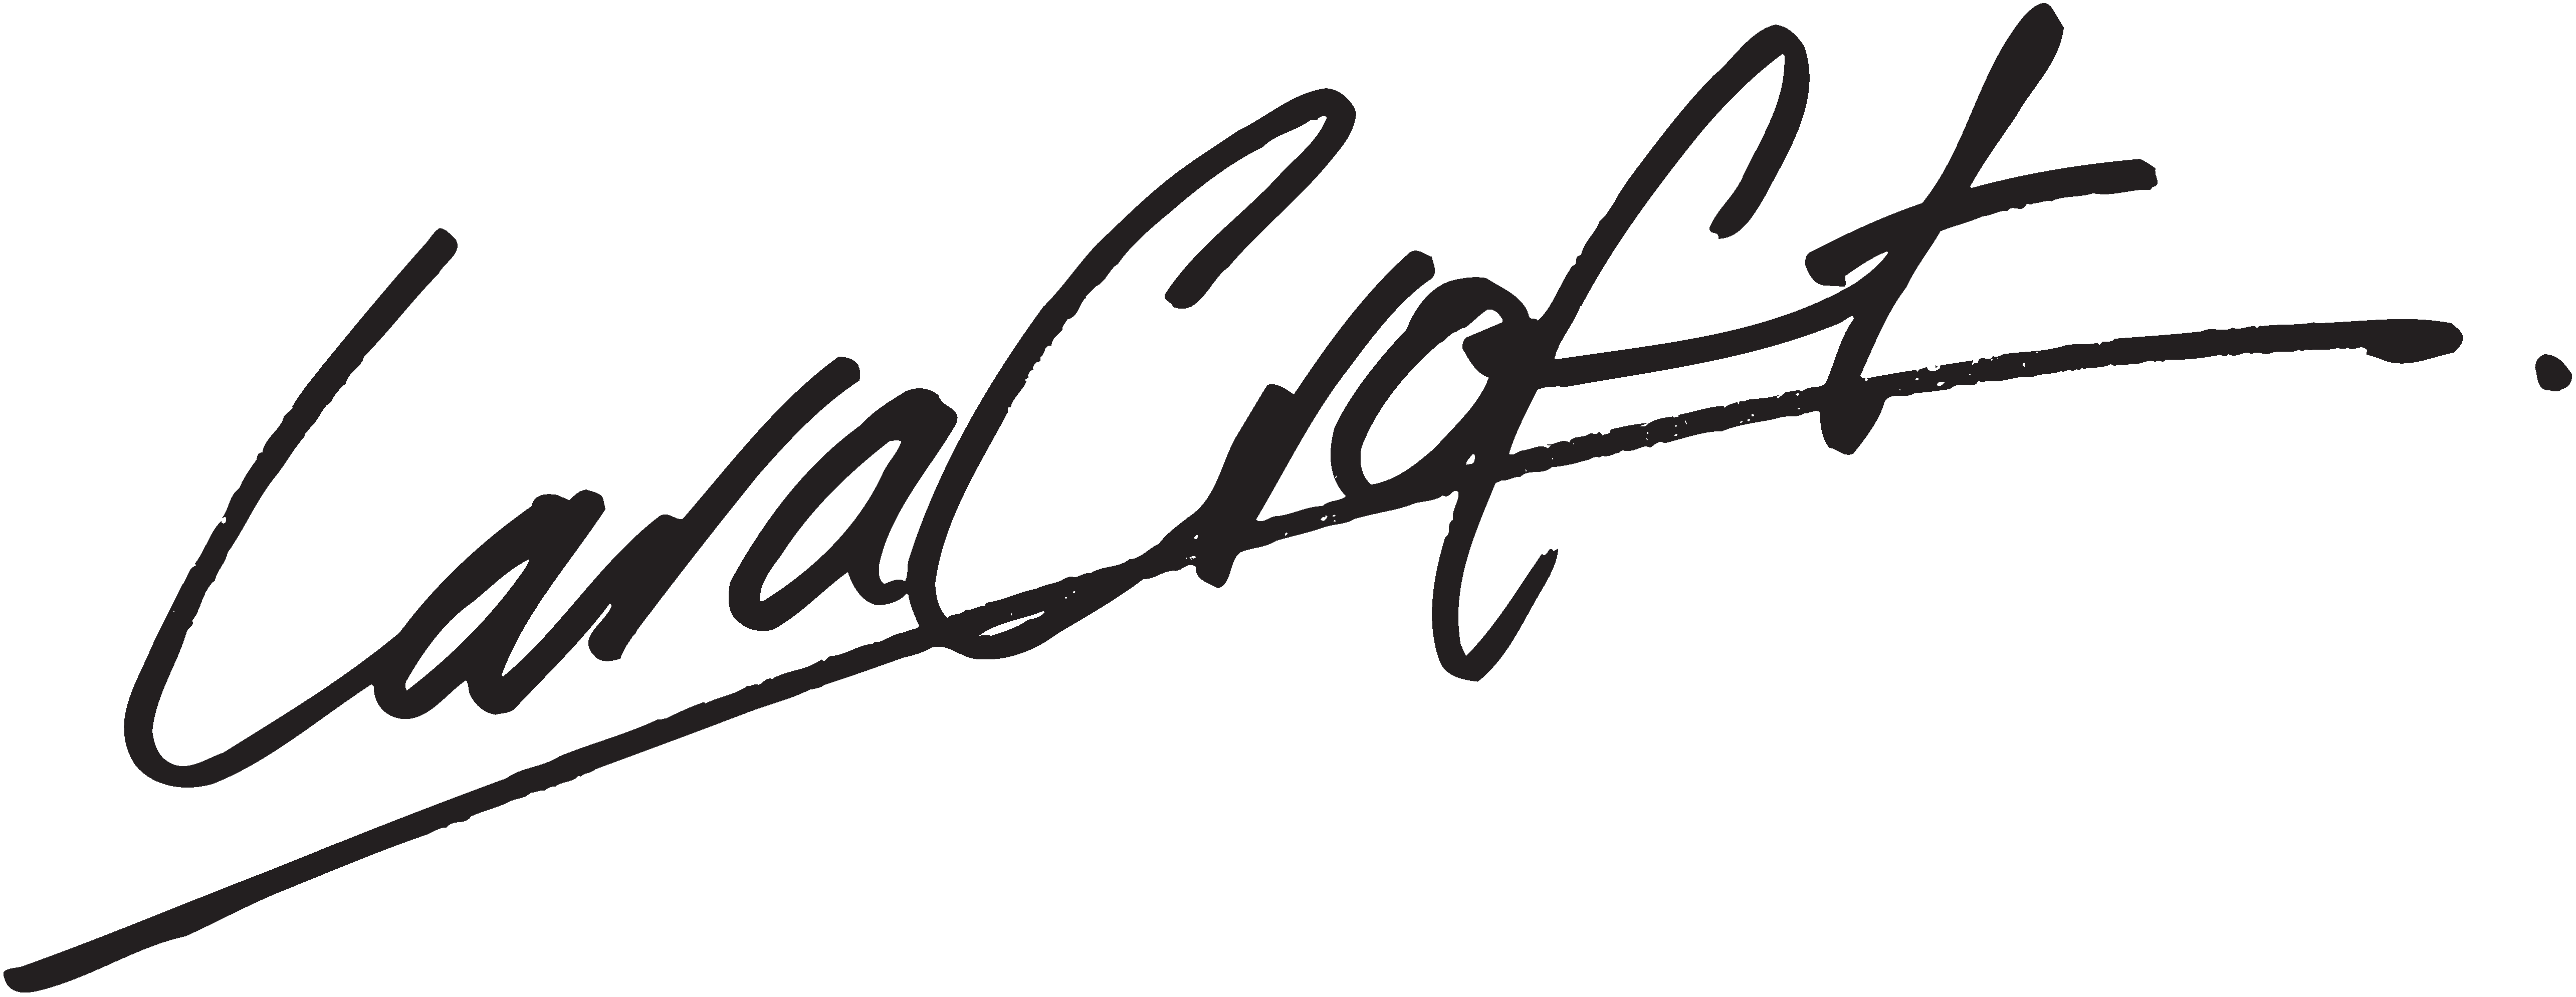 Lara Croft